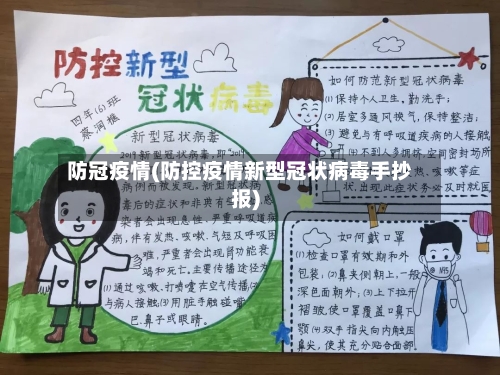 防控新型
冠状病毒
四年(6)班
新型冠状病毒
2019新型冠状病毒,即"2019
病例而被发现,新型冠状病
毒治的症状和非典有
染者会出现急性、严重呼吸道疾
病,伴有发热、咳嗽、气短及呼吸困
难,严重者会出现肾功能衰
竭和死亡。主要传播途径为
(1)通过咳嗽、打喷嚏在空气传播(2)
与病人接触(3)用脏手触碰嘴
巴、鼻子或眼睛。
防冠疫情(防控疫情新型冠状病毒手抄
报)
如何防范新型冠状病毒
(1)保持个人卫生,勤洗手;
(2)居室多通风换气,保持整洁;
(3)避免与有呼吸道疾病的人接触
(4)不到人多拥挤、空间密封场所
热、咳嗽等症
状,出现此症状务必及时就医
如何戴口罩
(1)检查口罩有效期和外
包装;(2)鼻夹侧朝上,一般
深色面朝外;(3)上下拉开
褶皱,使口罩覆盖口鼻下
颚(4)双手指尖向内触压
鼻尖,使其充分贴合面部。